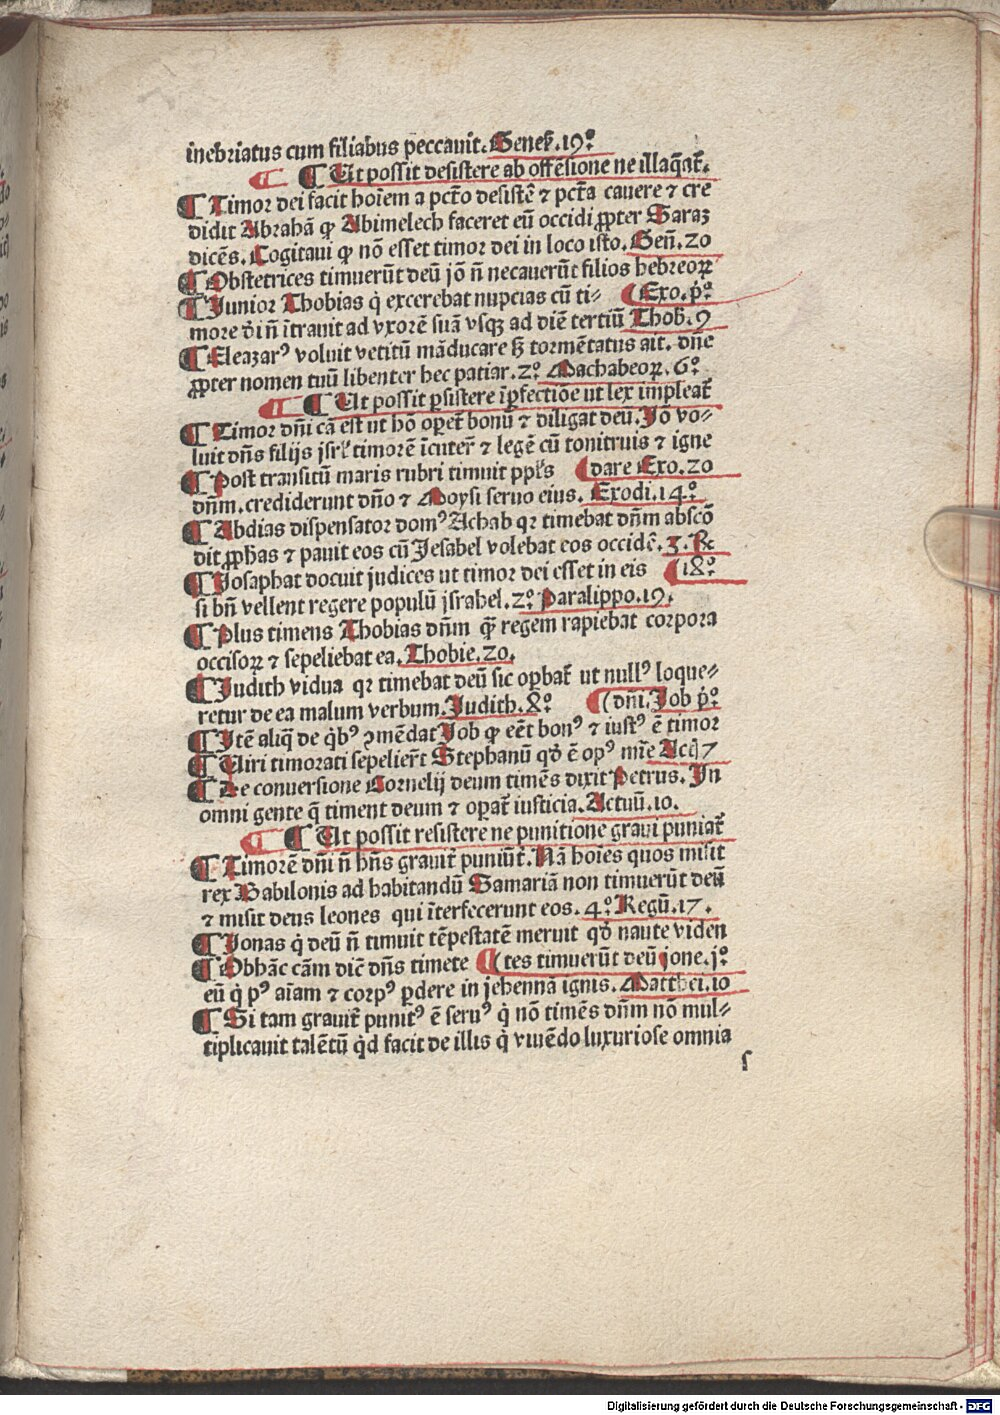 inebriatus cum filiabus peccauit. Geneſ. 19º
¶ Ut poſſit deſiſtere ab offēſione ne illaq̄at᷑.
¶ Timor dei facit hoīem a pctō deſiſtē ⁊ pctā cauere ⁊ cre
didit Abrahā ꝙ Abimelech faceret eū occidi ꝓpter Saraꝫ
dicēs. Cogitaui ꝙ nō eſſet timor dei in loco iſto. Geñ. 20
¶ Obſtetrices timuerūt deū jō n̄ necauerūt filios hebreoꝝ
¶ Junior Thobias q̇ excerebat nupcias cū ti⸗ (Exo. pº
more dī n̄ ītrauit ad vxorē ſuā vſqꝫ ad diē tertiū Thob. 9
¶ Eleazarꝰ voluit vetitū māducare ſꝫ tormētatus ait. dn̄e
ꝓpter nomen tuū libenter hec patiar. 2º Machabeoꝝ. 6º
¶ Ut poſſit ꝑſiſtere īꝑfectiōe ut lex impleat᷑
¶ Timor dn̄i cā eſt ut hō oꝑet᷑ bonū ⁊ diligat deū. Jō vo⸗
luit dn̄s filijs jſrl̄ timorē īcuter᷑ ⁊ legē cū tonitruis ⁊ igne
¶ Poſt tranſitū maris rubri timuit ppl̄s (dare Exo. 20
dn̄m. crediderunt dn̄o ⁊ Moyſi ſeruo eius. Exodi. 14º
¶ Abdias diſpenſator domꝰ Achab qꝛ timebat dn̄m abſcō
dit ꝓph̄as ⁊ pauit eos cū Jeſabel volebat eos occidē. 3. Re
¶ Joſaphat docuit judices ut timor dei eſſet in eis (18º
ſi bn̄ vellent regere populū jſrahel. 2º Paralippo. 19.
¶ Plus timens Thobias dn̄m q̄ꝫ regem rapiebat corpora
occiſoꝝ ⁊ ſepeliebat ea. Thobie. 20.
¶ Judith vidua qꝛ timebat deū ſic oꝑbat᷑ ut nullꝰ loque⸗
retur de ea malum verbum. Judith. 8º (dn̄i. Job pº
¶ Itē aliq̄ de q̇bꝰ ꝯmēdat Job ꝙ eēt bonꝰ ⁊ iuſtꝰ ē timor
¶ Uiri timorati ſepelier̄t Stephanū qd̄ ē opꝰ mīe Act̄ 7
¶ De conuerſione Cornelij deum timēs dixit Petrus. In
omni gente q̄ timent deum ⁊ oꝑat᷑ iuſticia. Actuū. 10.
¶ Ut poſſit reſiſtere ne punitione graui puniat᷑
¶ Timorē dn̄i n̄ hn̄s grauit᷑ puniūt᷑. Nā hoīes quos miſit
rex Babilonis ad habitandū Samariā non timuerūt deū
⁊ miſit deus leones qui īterfecerunt eos. 4º Regū. 17.
¶ Jonas q̇ deū n̄ timuit tēpeſtatē meruit qd̄ naute viden
¶ Obhāc cām dic̄ dn̄s timete (tes timuerūt deū jone. jº
eū q̇ pꝰ aīam ⁊ corpꝰ ꝑdere in jehennā ignis. Matthei. 10
¶ Si tam grauit᷑ punitꝰ ē ſeruꝰ q̇ nō timēs dn̄m nō mul⸗
tiplicauit talētū q̇d facit de illis q̇ viuēdo luxurioſe omnia
ſ
Digitalisierung gefördert durch die Deutsche Forschungsgemeinschaft - DFG